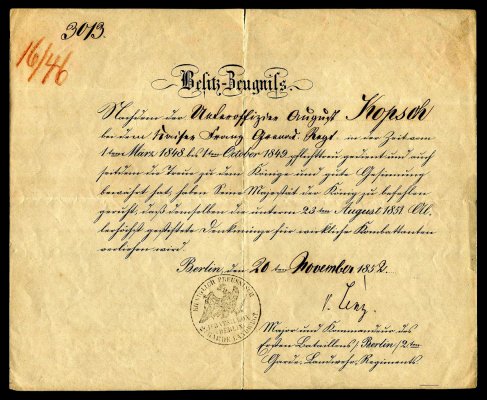 3013.
16/46
Besitz-Zeugniß.
Nachdem der Unteroffizier August Kopsch
bei dem Kaiser Franz Grenad. Regt. in der Zeit vom
1ten März 1848 bis 1ten October 1849 pflichttreu gedient und auch
seitdem die Treue zu dem Könige und gute Gesinnung
bewahrt hat, haben Seine Majestät der König zu befehlen
geruht, daß demselben die unterm 23ten August 1851 Al-
lerhöchst gestiftete Denkmünze für wirkliche Kombattanten
verliehen wird.
Berlin, den 20 ten November 1852.
KOENIGLICH PREUSSISCHES
BERLIN
GARDE LANDWEHR
Major und Kommandeur des
Ersten Bataillons /Berlin/ 2ten
Garde-Landwehr-Regiments